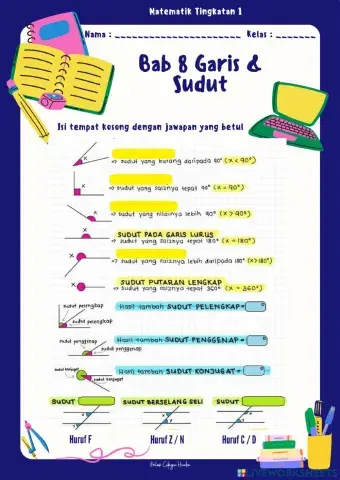 Matematik Tingkatan 1
Nama : Kelas :
Bab 8 Garis &
Sudut
Isi tempat kosong dengan jawapan yang betul
x
⇒ sudut yang kurang daripada 90° (x < 90°)
x
⇒ sudut yang saiznya tepat 90° (x = 90°)
x
⇒ sudut yang nilainya lebih 90° (x > 90°)
SUDUT PADA GARIS LURUS
x
⇒ sudut yang saiznya tepat 180° (x = 180°)
x
⇒ sudut yang saiznya lebih daripada 180° (x > 180°)
SUDUT PUTARAN LENGKAP
x
⇒ sudut yang saiznya tepat 360° (x = 360°)
sudut pelengkap
Hasil tambah SUDUT PELENGKAP =
sudut pelengkap
sudut penggenap
Hasil tambah SUDUT PENGGENAP =
sudut penggenap
sudut konjugat
Hasil tambah SUDUT KONJUGAT =
sudut konjugat
SUDUT
SUDUT BERSELANG SELI
SUDUT
Huruf F
Huruf Z / N
Huruf C / D
LIVEWORKSHEETS